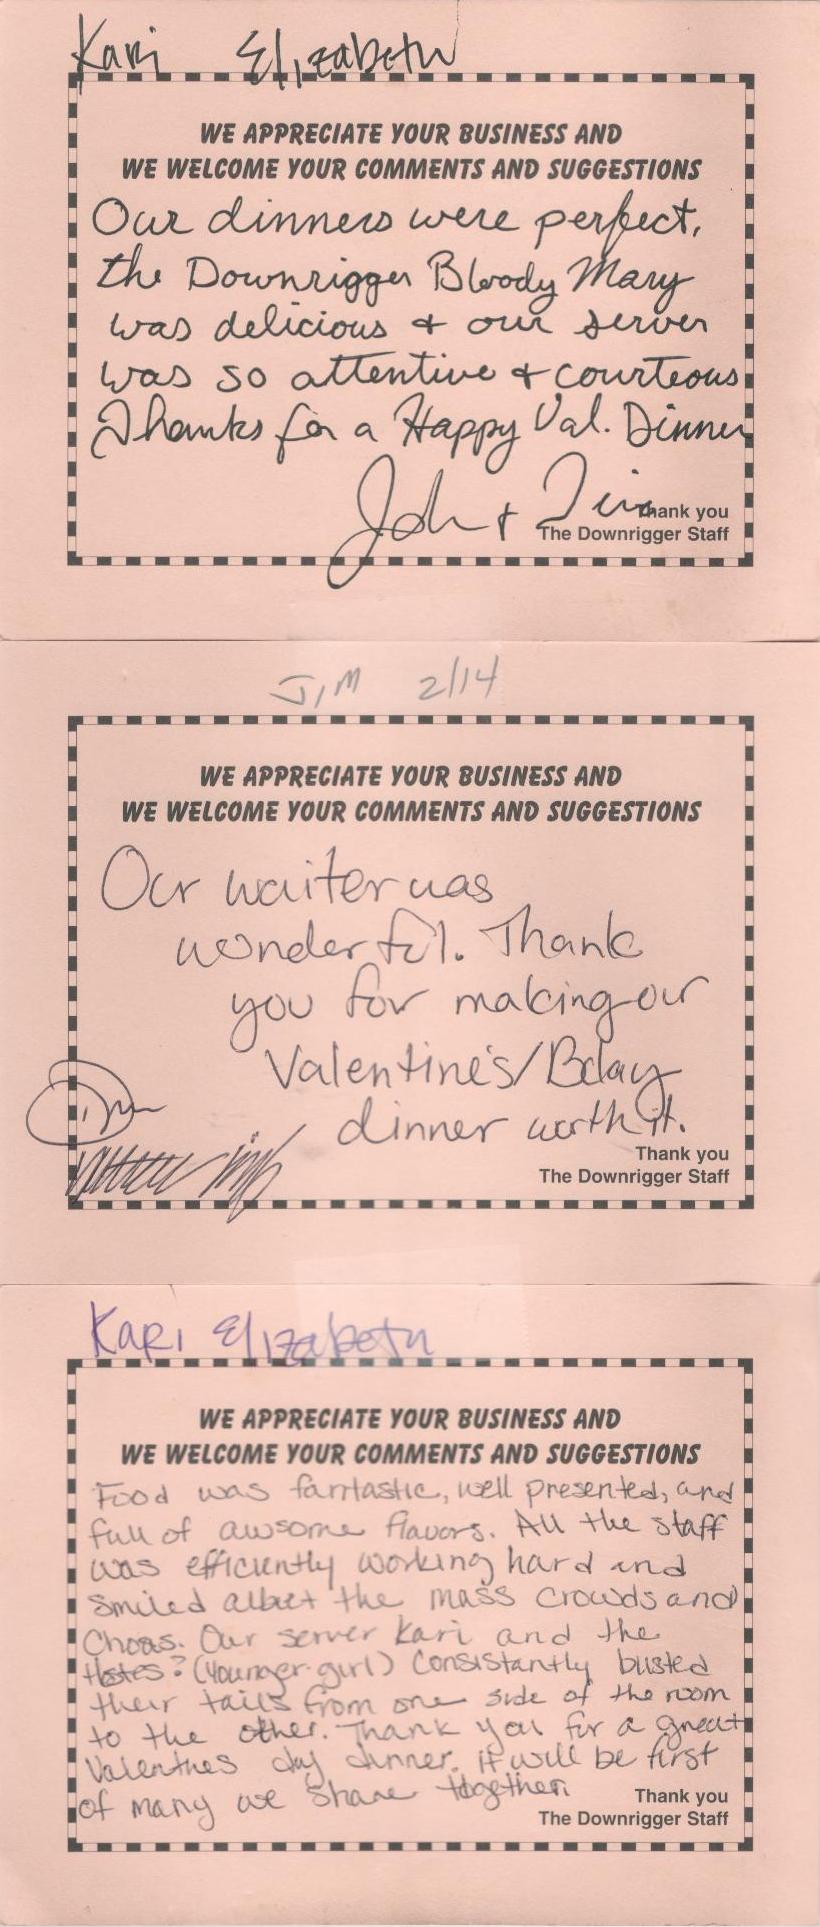 Kari Elizabeth
WE APPRECIATE YOUR BUSINESS AND
WE WELCOME YOUR COMMENTS AND SUGGESTIONS
Our dinners were perfect,
the Downrigger Bloody Mary
was delicious + our server
was so attentive + courteous
Thanks for a Happy Val. Dinner
John +
Thank you
The Downrigger Staff
JIM 2/14
WE APPRECIATE YOUR BUSINESS AND
WE WELCOME YOUR COMMENTS AND SUGGESTIONS
Our waiter was
wonderful. Thank
you for making our
Valentine's/Bday
dinner worth it.
Jim
Thank you
The Downrigger Staff
Kari Elizabeth
WE APPRECIATE YOUR BUSINESS AND
WE WELCOME YOUR COMMENTS AND SUGGESTIONS
Food was fantastic, well presented, and
full of awsome flavors. All the staff
was efficiently working hard and
smiled albiet the mass crowds and
Choas. Our server Kari and the
Hostes? (younger girl) Consistantly busted
their tails from one side of the room
to the other. Thank you for a great
Valentines day dinner. it will be first
of many we share together.
Thank you
The Downrigger Staff